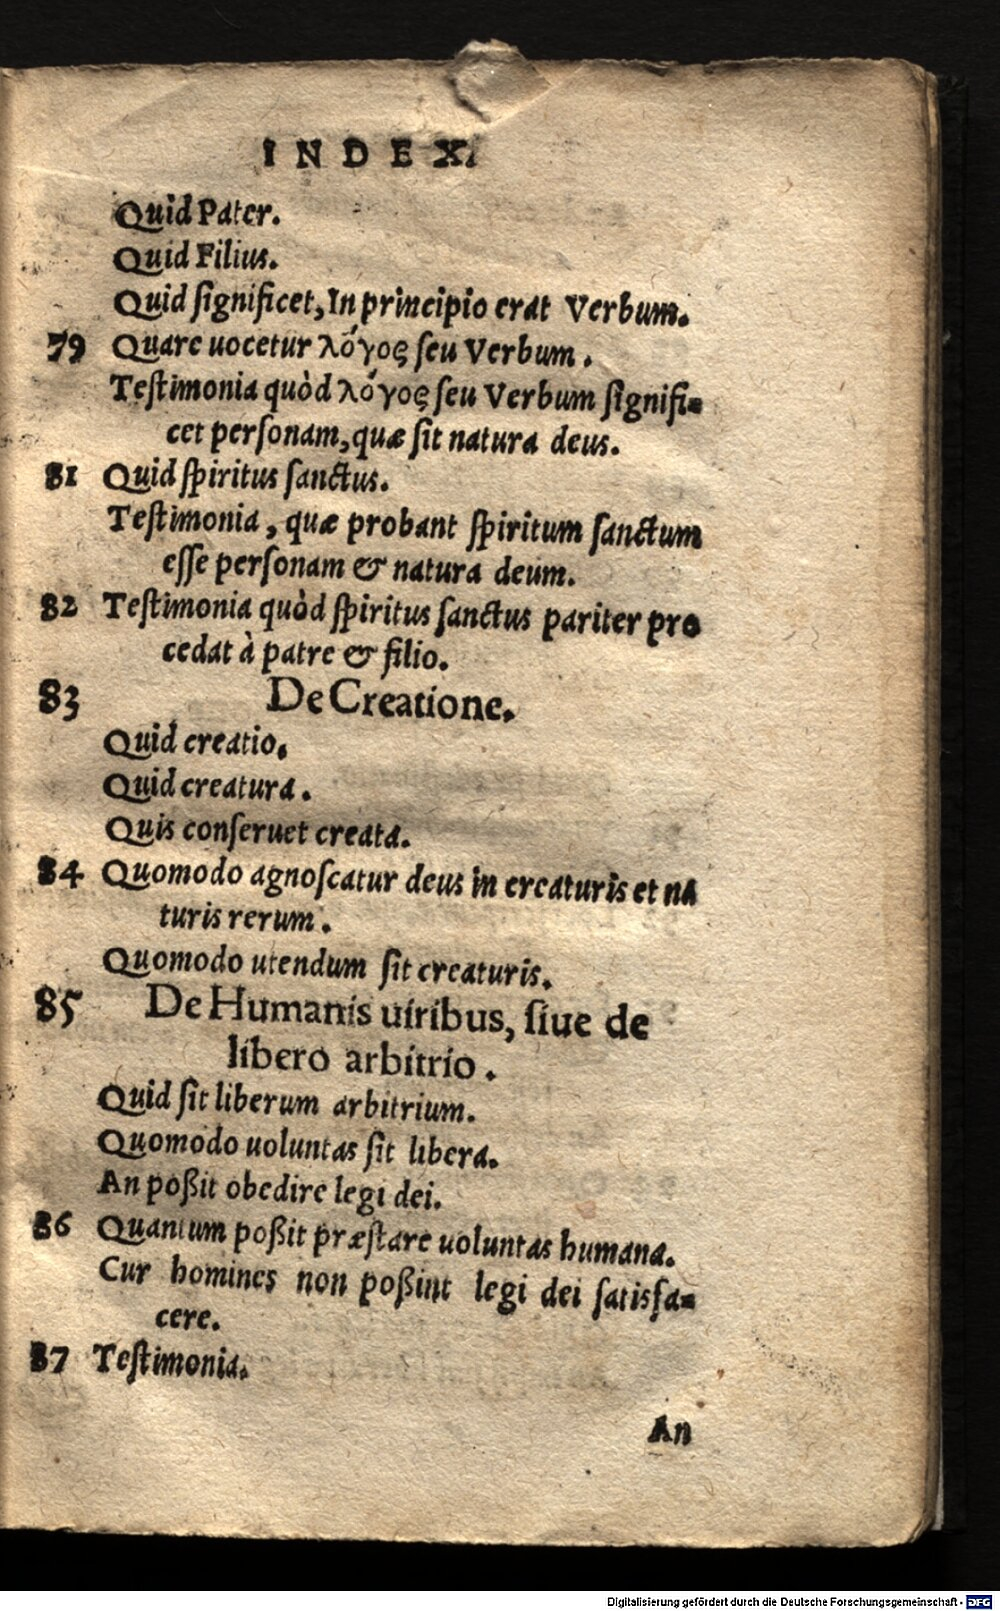 INDEX.
Quid Pater.
Quid Filius.
Quid ſignificet, In principio erat Verbum.
79 Quare uocetur λόγος ſeu Verbum.
Teſtimonia quòd λόγος ſeu Verbum ſignifi-
cet perſonam, quæ ſit natura deus.
81 Quid ſpiritus ſanctus.
Teſtimonia, quæ probant ſpiritum ſanctum
eſſe perſonam & natura deum.
82 Teſtimonia quòd ſpiritus ſanctus pariter pro
cedat à patre & filio.
83 De Creatione.
Quid creatio.
Quid creatura.
Quis conſeruet creata.
84 Quomodo agnoſcatur deus in creaturis et na
turis rerum.
Quomodo utendum ſit creaturis.
85 De Humanis uiribus, ſiue de
libero arbitrio.
Quid ſit liberum arbitrium.
Quomodo uoluntas ſit libera.
An poßit obedire legi dei.
86 Quantum poßit præſtare uoluntas humana.
Cur homines non poßint legi dei ſatisfa-
cere.
87 Teſtimonia.
An
Digitalisierung gefördert durch die Deutsche Forschungsgemeinschaft - DFG